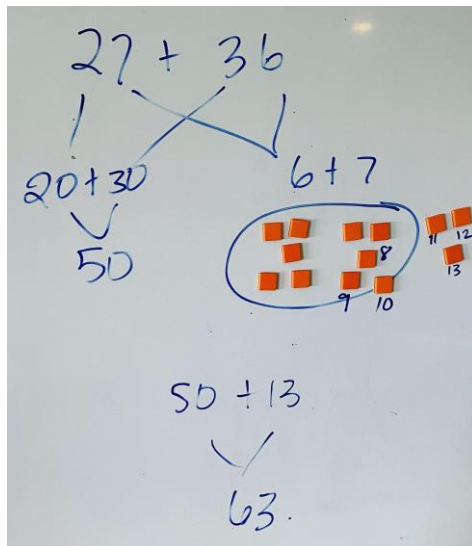 27 + 36
20+30
6+7
50
8
9
10
11
12
13
50 +13
63.